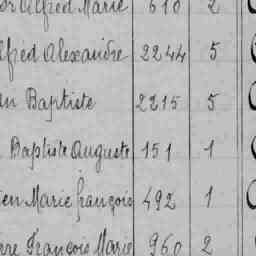 Alfred Marie 610 2
Alfred Alexandre 2244 5
Baptiste 2215 5
Baptiste Auguste 151 1
Marie François 492 1
François Marie 960 2